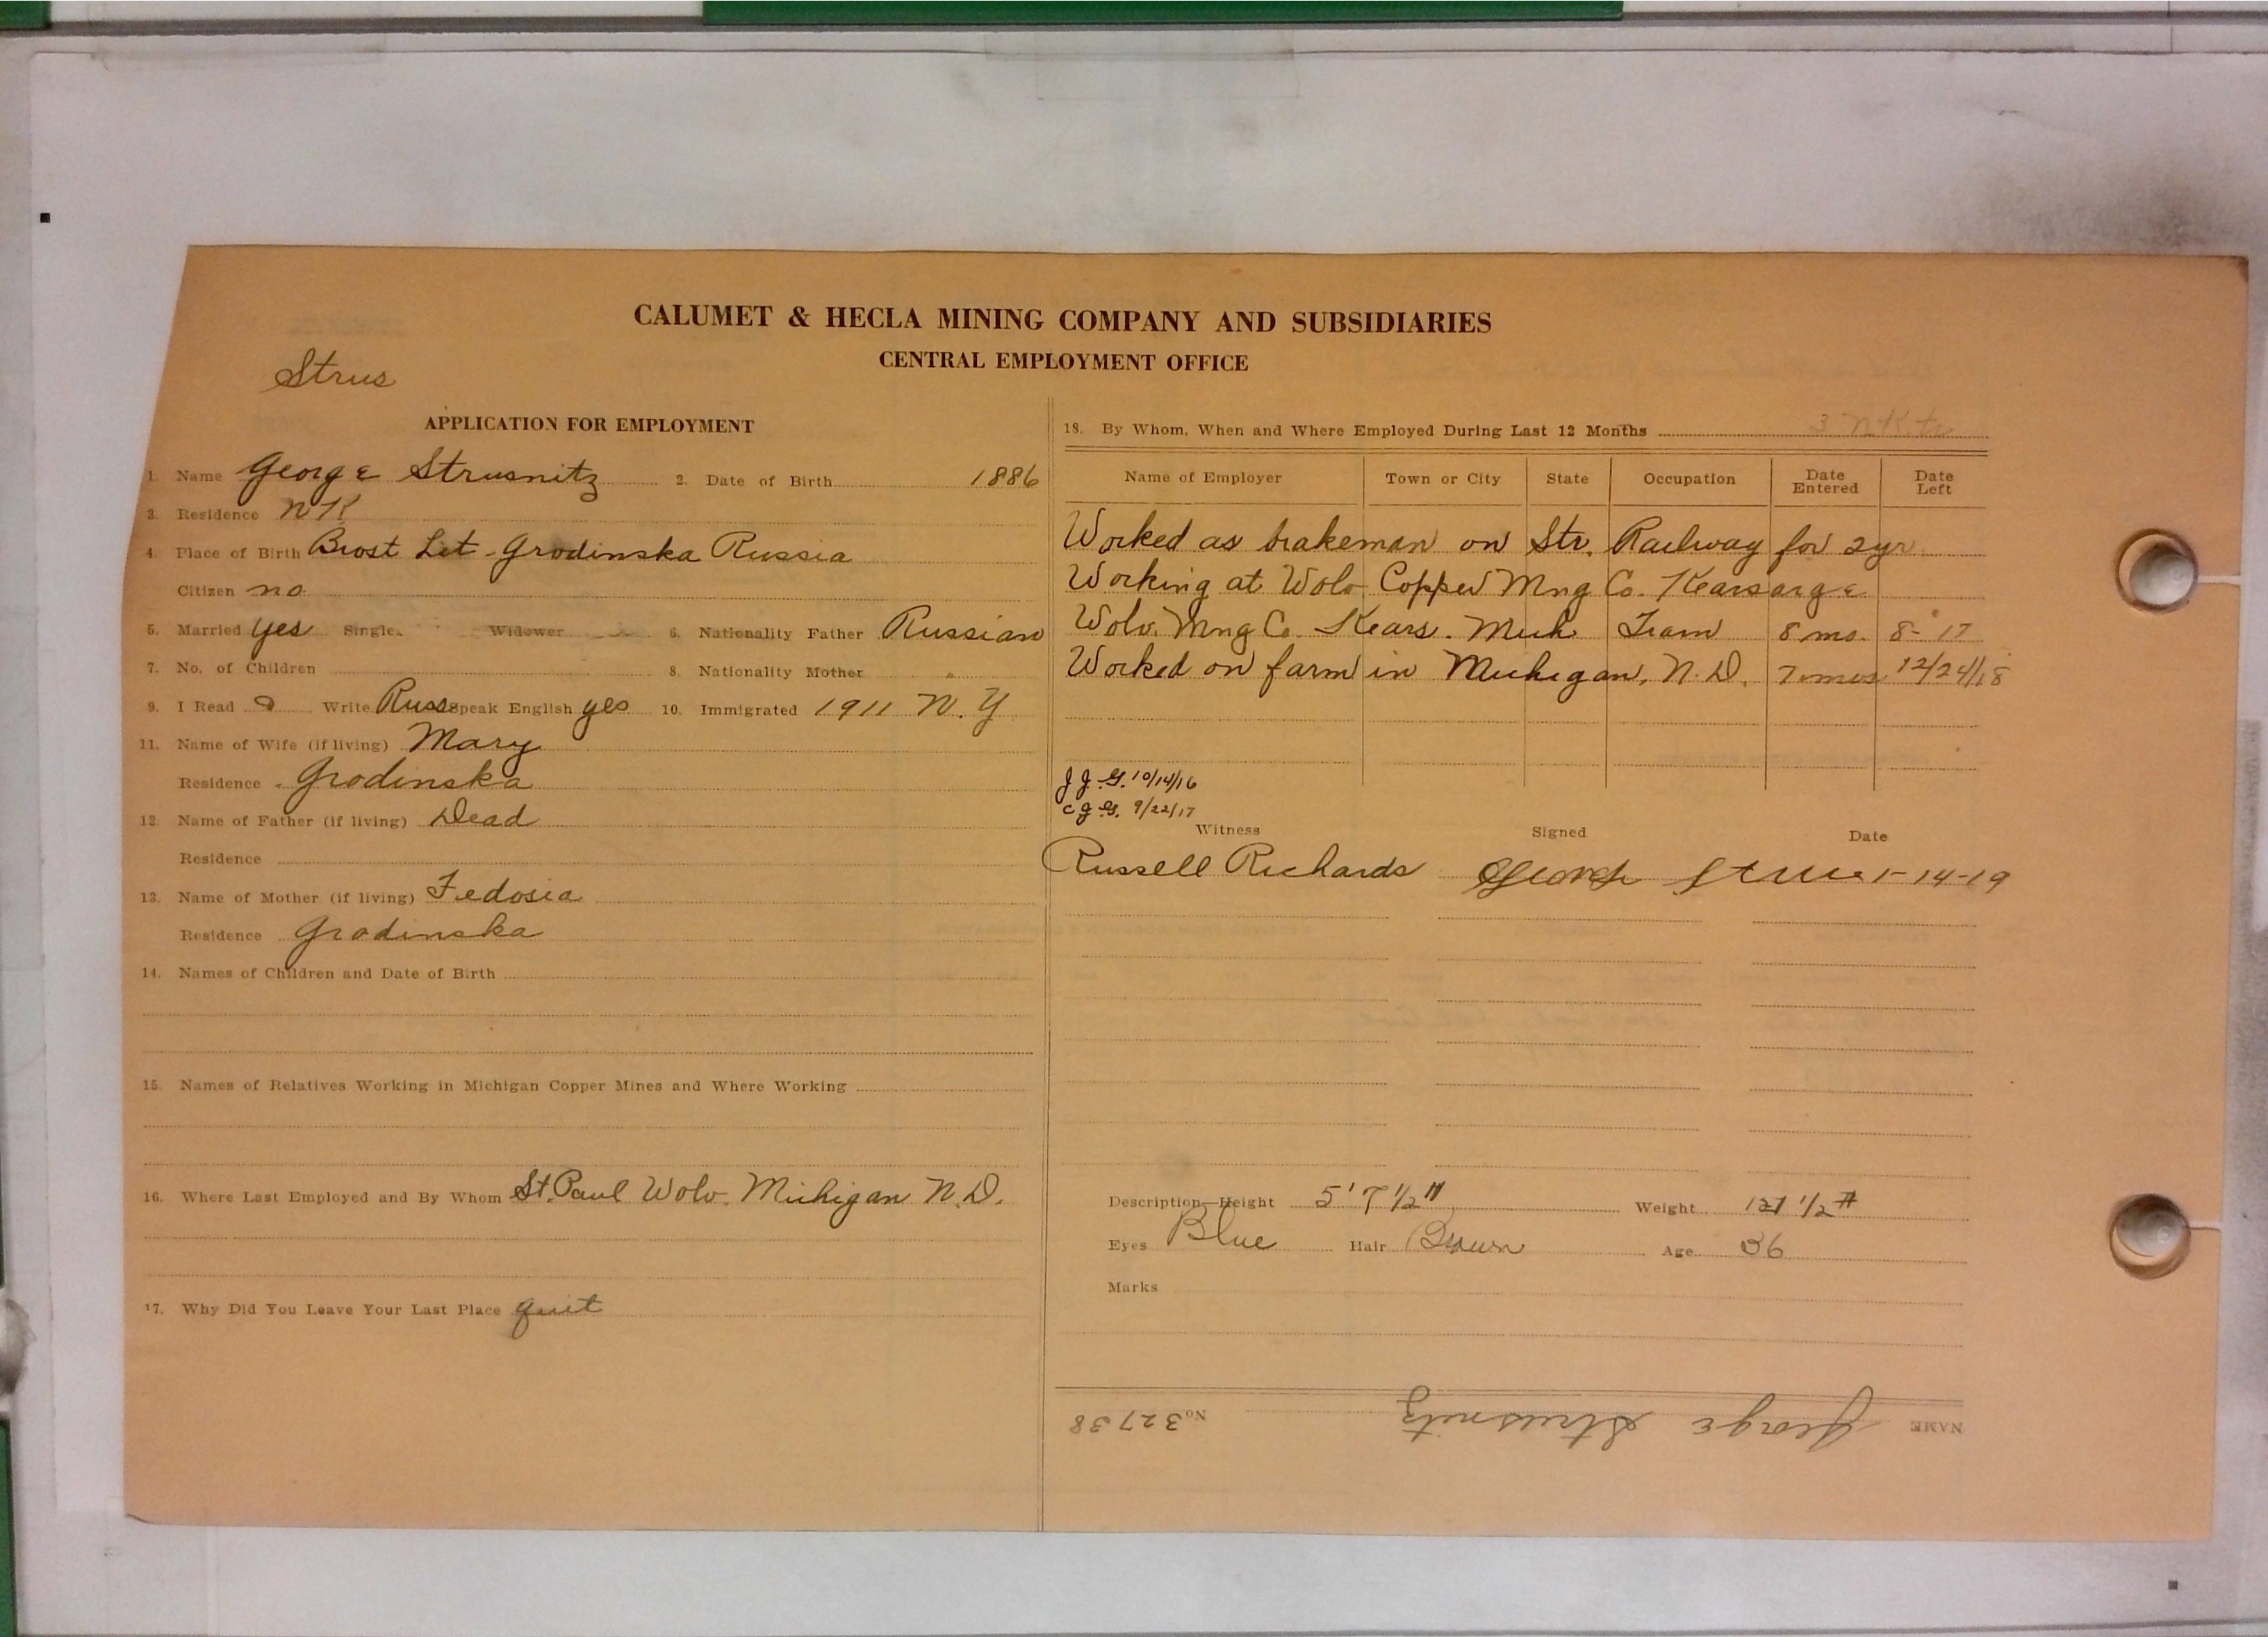 CALUMET & HECLA MINING COMPANY AND SUBSIDIARIES
CENTRAL EMPLOYMENT OFFICE
Strus
APPLICATION FOR EMPLOYMENT
1. Name George Strusnitz 2. Date of Birth 1886
3. Residence NK
4. Place of Birth Brost Lit - Grodinska Russia
Citizen no
5. Married yes Single Widower 6. Nationality Father Russian
7. No. of Children 8. Nationality Mother "
9. I Read Write Russ Speak English yes 10. Immigrated 1911 N.Y
11. Name of Wife (if living) Mary
Residence Grodinska
12. Name of Father (if living) Dead
Residence
13. Name of Mother (if living) Fedosia
Residence Grodinska
14. Names of Children and Date of Birth
15. Names of Relatives Working in Michigan Copper Mines and Where Working
16. Where Last Employed and By Whom St. Paul Wolv. Michigan N.D.
17. Why Did You Leave Your Last Place quit
18. By Whom, When and Where Employed During Last 12 Months
Name of Employer Town or City State Occupation Date Entered Date Left
Worked as brakeman on Str. Railway for 2yr
Working at Wolv Copper Mng Co. Kearsarge
Wolv. Mng Co. Kears. Mich Tram 8 mo. 8-17
Worked on farm in Michigan, N.D. 7 mos 12/24/18
J J G. 10/14/16
C J G. 9/22/17
Witness Signed Date
Russell Richards George Strus 1-14-19
Description—Height 5' 7 1/2" Weight 127 1/2 #
Eyes Blue Hair Brown Age 36
Marks
NAME George Strusnitz No 32738